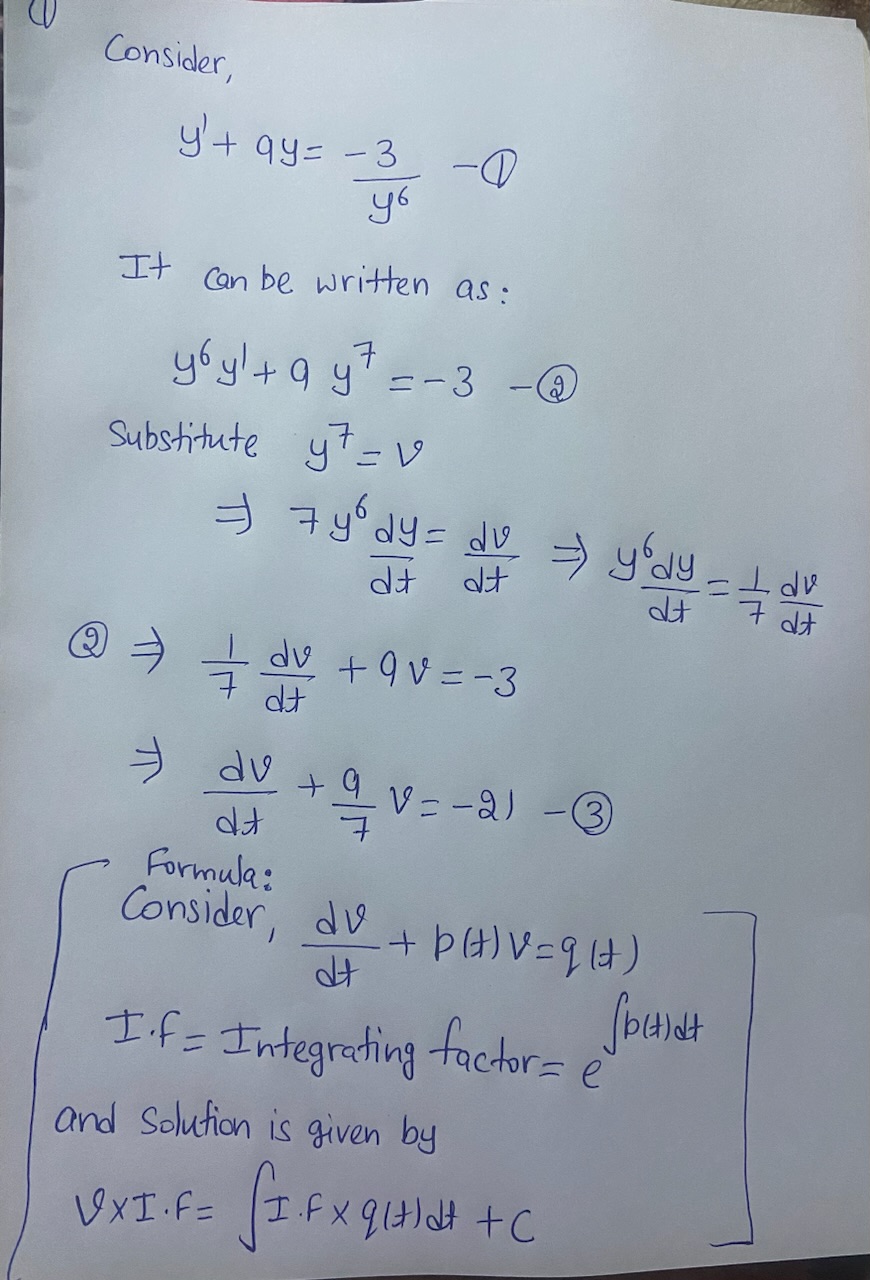 ①
Consider,
y' + 9y = -3/y⁶ - ①
It can be written as:
y⁶y' + 9 y⁷ = -3 - ②
Substitute y⁷ = v
⇒ 7y⁶ dy/dt = dv/dt ⇒ y⁶ dy/dt = 1/7 dv/dt
② ⇒ 1/7 dv/dt + 9v = -3
⇒ dv/dt + 9/7 v = -21 - ③
Formula:
Consider, dv/dt + p(t) v = q(t)
I.F = Integrating factor = e^∫p(t)dt
and Solution is given by
v×I.F = ∫I.F × q(t)dt + C